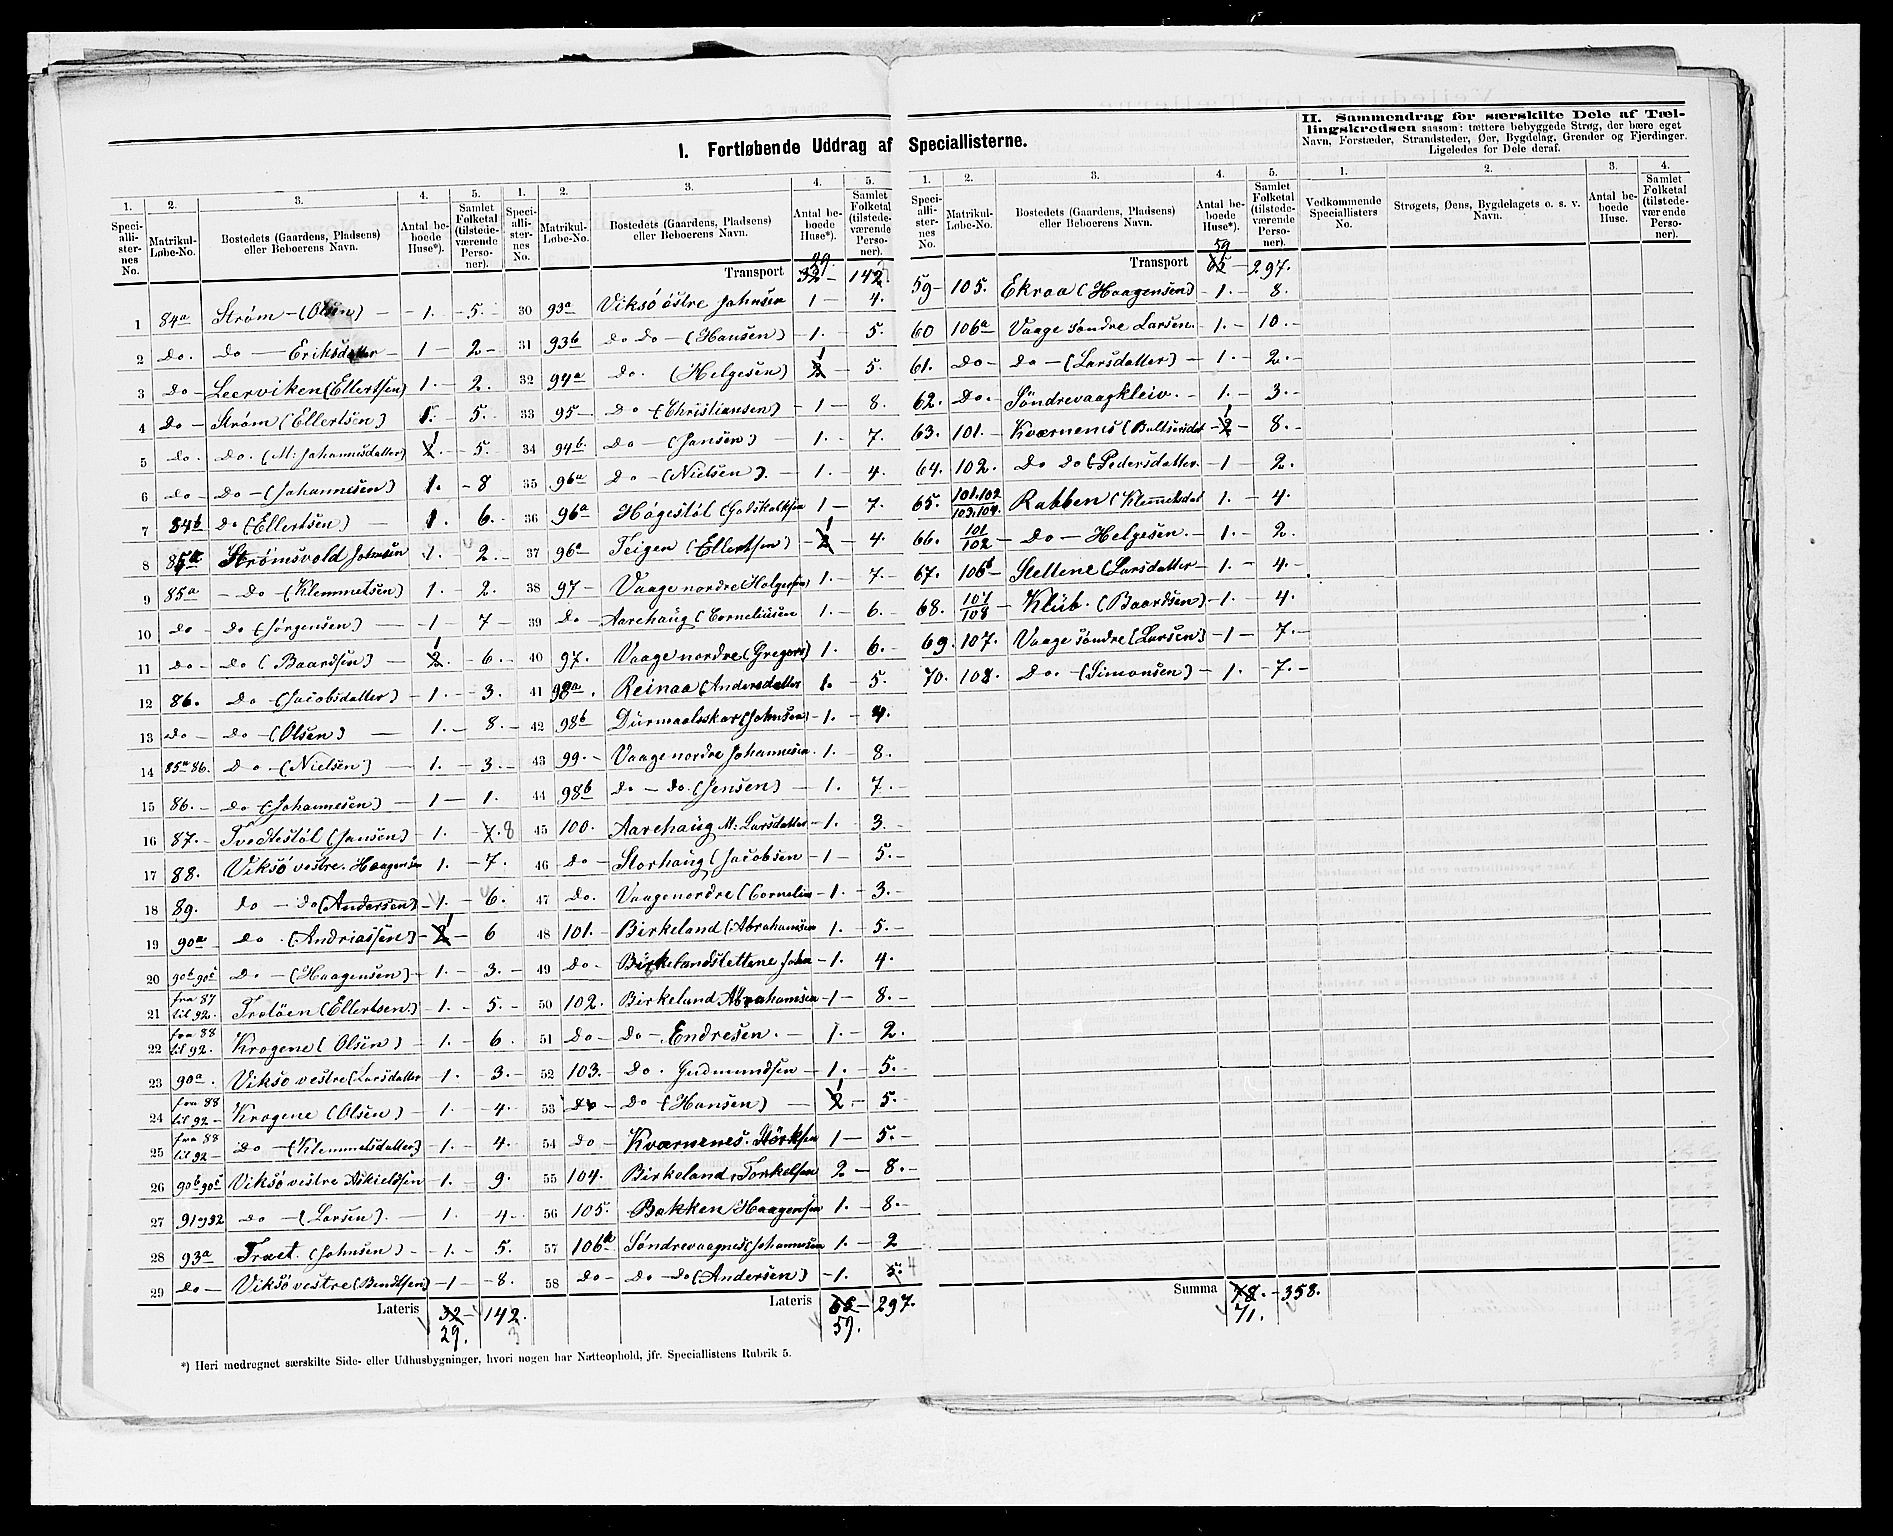 I. Fortløbende Uddrag af Speciallisterne.
II. Sammendrag for særskilte Dele af Tæl-
lingskredsen saasom: tættere bebyggede Strøg, der bære eget
Navn, Forstæder, Strandsteder, Øer, Bygdelag, Grender og Fjerdinger.
Ligeledes for Dele deraf.
1. 2. 3. 4. 5.
Speciallisternes No. Matrikul-Løbe-No. Bostedets (Gaardens, Pladsens) eller Beboerens Navn. Antal beboede Huse*). Samlet Folketal (tilstedeværende Personer).
1 84a Strøm - (Olsen) - 1. - 5. -
2 Do. Do - Eriksdatter - 1 - 2 -
3 Do - Leerviken (Ellertsen) 1. - 2.
4 Do - Strøm (Ellertsen) 1. - 5. -
5 Do. Do. (M. Johannisdatter) 2. 1 - 5.
6 Do - Do - (Johannesen) 1. - 8
7 84b Do (Ellertsen) - 1. 6. -
8 85a Strømsvold Johnsen 1. - 2. -
9 85a - Do - (Klemmetsen) 1. - 2.
10 Do - Do - (Jørgensen) - 1 7 -
11 Do - Do (Baardsen) - 2. 1 - 6. -
12 86. Do - (Jacobsdatter) - 1. - 3. -
13 Do - Do - (Olsen) - 1. - 8. -
14 85a 86. Do - (Nielsen) - 1. - 3. -
15 86. - Do (Johannesen) - 1 - 1.
16 87. - Tvedtestøl (Jansen) 1. - 7. 8
17 88. Viksø vestre. Haagensen 1. - 7.
18 89. Do - Do (Andersen) - 1. - 6.
19 90a - Do. (Andriassen) - 2 1 - 6
20 90b 90c Do - (Haagensen) - 1. - 3. -
21 fra 87 til 92. Troløen (Ellertsen) - 1. - 5. -
22 fra 88 til 92. Krogene (Olsen) - 1. - 6.
23 90a. Viksø vestre (Larsdatter - 1. - 3. -
24 fra 88 til 92 - Krogene (Olsen) - 1. - 4. -
25 fra 88 til 92 - Do - (Klemmetsdatter) - 1. - 4.
26 90b 90c Viksø vestre Askieldsen - 1. - 9.
27 91 og 92 Do - (Larsen). - 1. 4 -
28 93a Træet. (Johnsen) - 1. - 5.
29 Do - Viksø vestre (Bendtsen) - 1 - 8.
Lateris 32 - 142.
29. 3
1. 2. 3. 4. 5.
Speciallisternes No. Matrikul-Løbe-No. Bostedets (Gaardens, Pladsens) eller Beboerens Navn. Antal beboede Huse*). Samlet Folketal (tilstedeværende Personer).
29.
Transport 32 - 142.
30 93a Viksö östre Johnsen 1 - 4.
31 93b Do Do - (Hansen) - 1. 5.
32 94a Do. (Helgesen) 2 1 - 5.
33 95 - Do - (Christiansen) - 1 - 8.
34 94b. Do - (Jansen) - 1. - 7.
35 96a Do - (Nielsen). - 1. - 4.
36 96a Høgestøl (Godskalksen 1 - 7.
37 96a Teigen (Ellertsen) - 2 1 - 4.
38 97 - Vaage nordre (Helgesen) 1. - 7. -
39 Do - Aarehaug (Corneliusen 1. - 6. -
40 97. Vaage nordre (Gregers) 1. 6. -
41 98a. Reinaa (Andersdatter 1. 5.
42 98b Durmaalsskar (Johnsen) - 1. - 4.
43 99. - Vaage nordre Johannesen. 1. - 8.
44 98b Do - Do. (Jensen) - 1. 7. -
45 100. Aarehaug M: Larsdatter - 1. 3. -
46 Do - Storhaug (Jacobsen - 1 - 5. -
47 Do. Vaage nordre (Cornelius - 1. - 3. -
48 101. - Birkeland (Abrahamsen 1. - 5. -
49 Do - Birkelandslettene John - 1. 4.
50 102. Birkeland Abrahamsen - 1 - 8. -
51 Do - Do - Endresen. - 1. - 2.
52 103. Do. Gudmundsen - 1. - 5. -
53 Do - Do (Hansen) - 2 1. - 5. -
54 Do - Kværnenes. Störksen 1 - 5. -
55 104. Birkeland Torkelsen 2 - 8. -
56 105. Bakken Haagensen 1. - 8. -
57 106a. Søndrevaagnes (Johannesen 1. - 2
58 Do - Do - Do (Andersen) - 1. 5. 4
Lateris 65 - 297.
59.
*) Heri medregnet særskilte Side- eller Udhusbygninger, hvori nogen har Natteophold, jfr. Speciallistens Rubrik 5.
1. 2. 3. 4. 5.
Speciallisternes No. Matrikul-Løbe-No. Bostedets (Gaardens, Pladsens) eller Beboerens Navn. Antal beboede Huse*). Samlet Folketal (tilstedeværende Personer).
59
Transport 65 - 297.
59 - 105. Ekraa (Haagensen) - 1. - 8.
60 106a Vaage søndre Larsen. - 1. - 10. -
61. Do - Do - (Larsdatter) - 1. - 2.
62. Do. - Søndrevaagkleiv. - 1. - 3. -
63. 101. - Kværnenes (Baltsersdat - 2 1 - 8. -
64. 102. Do Do (Pedersdatter. - 1 - 2.
65. 101.102 103.104. Rabben (Klemmetsdat 1. - 4.
66. 101/102 - Do - Helgesen. - 1. - 2.
67. 106b - Slettene (Larsdatter - 1. - 4. -
68. 107/108 - Klub. (Baardsen) - 1. - 4.
69. 107. Vaage søndre (Larsen) - 1 - 7. -
70. 108. Do. (Simonsen) - 1. - 7. -
Summa 78. - 358.
71.
1. 2. 3. 4.
Vedkommende Speciallisters No. Strøgets, Øens, Bygdelagets o. s. v. Navn. Antal beboede Huse. Samlet Folketal (tilstedeværende Personer).